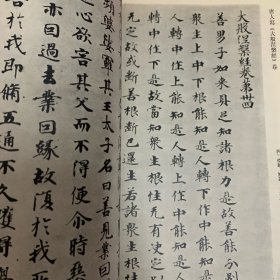 唐人写《大般涅槃经》卷
大般涅槃經卷第卅四
善男子如来具足知諸根力是故善能分
衆生上中下根能知是人轉下作中能知是
轉中作上能知是人轉上作中能知是人
轉中作下是故當知衆生根性无有定
无定故或斷善根斷已還生若諸衆生根性
頻婆娑羅其王太子名曰善見業因
惡心欲害其父而不得便尒時
亦因過去業因緣故復於我所
於我所即脩五通不久獲得